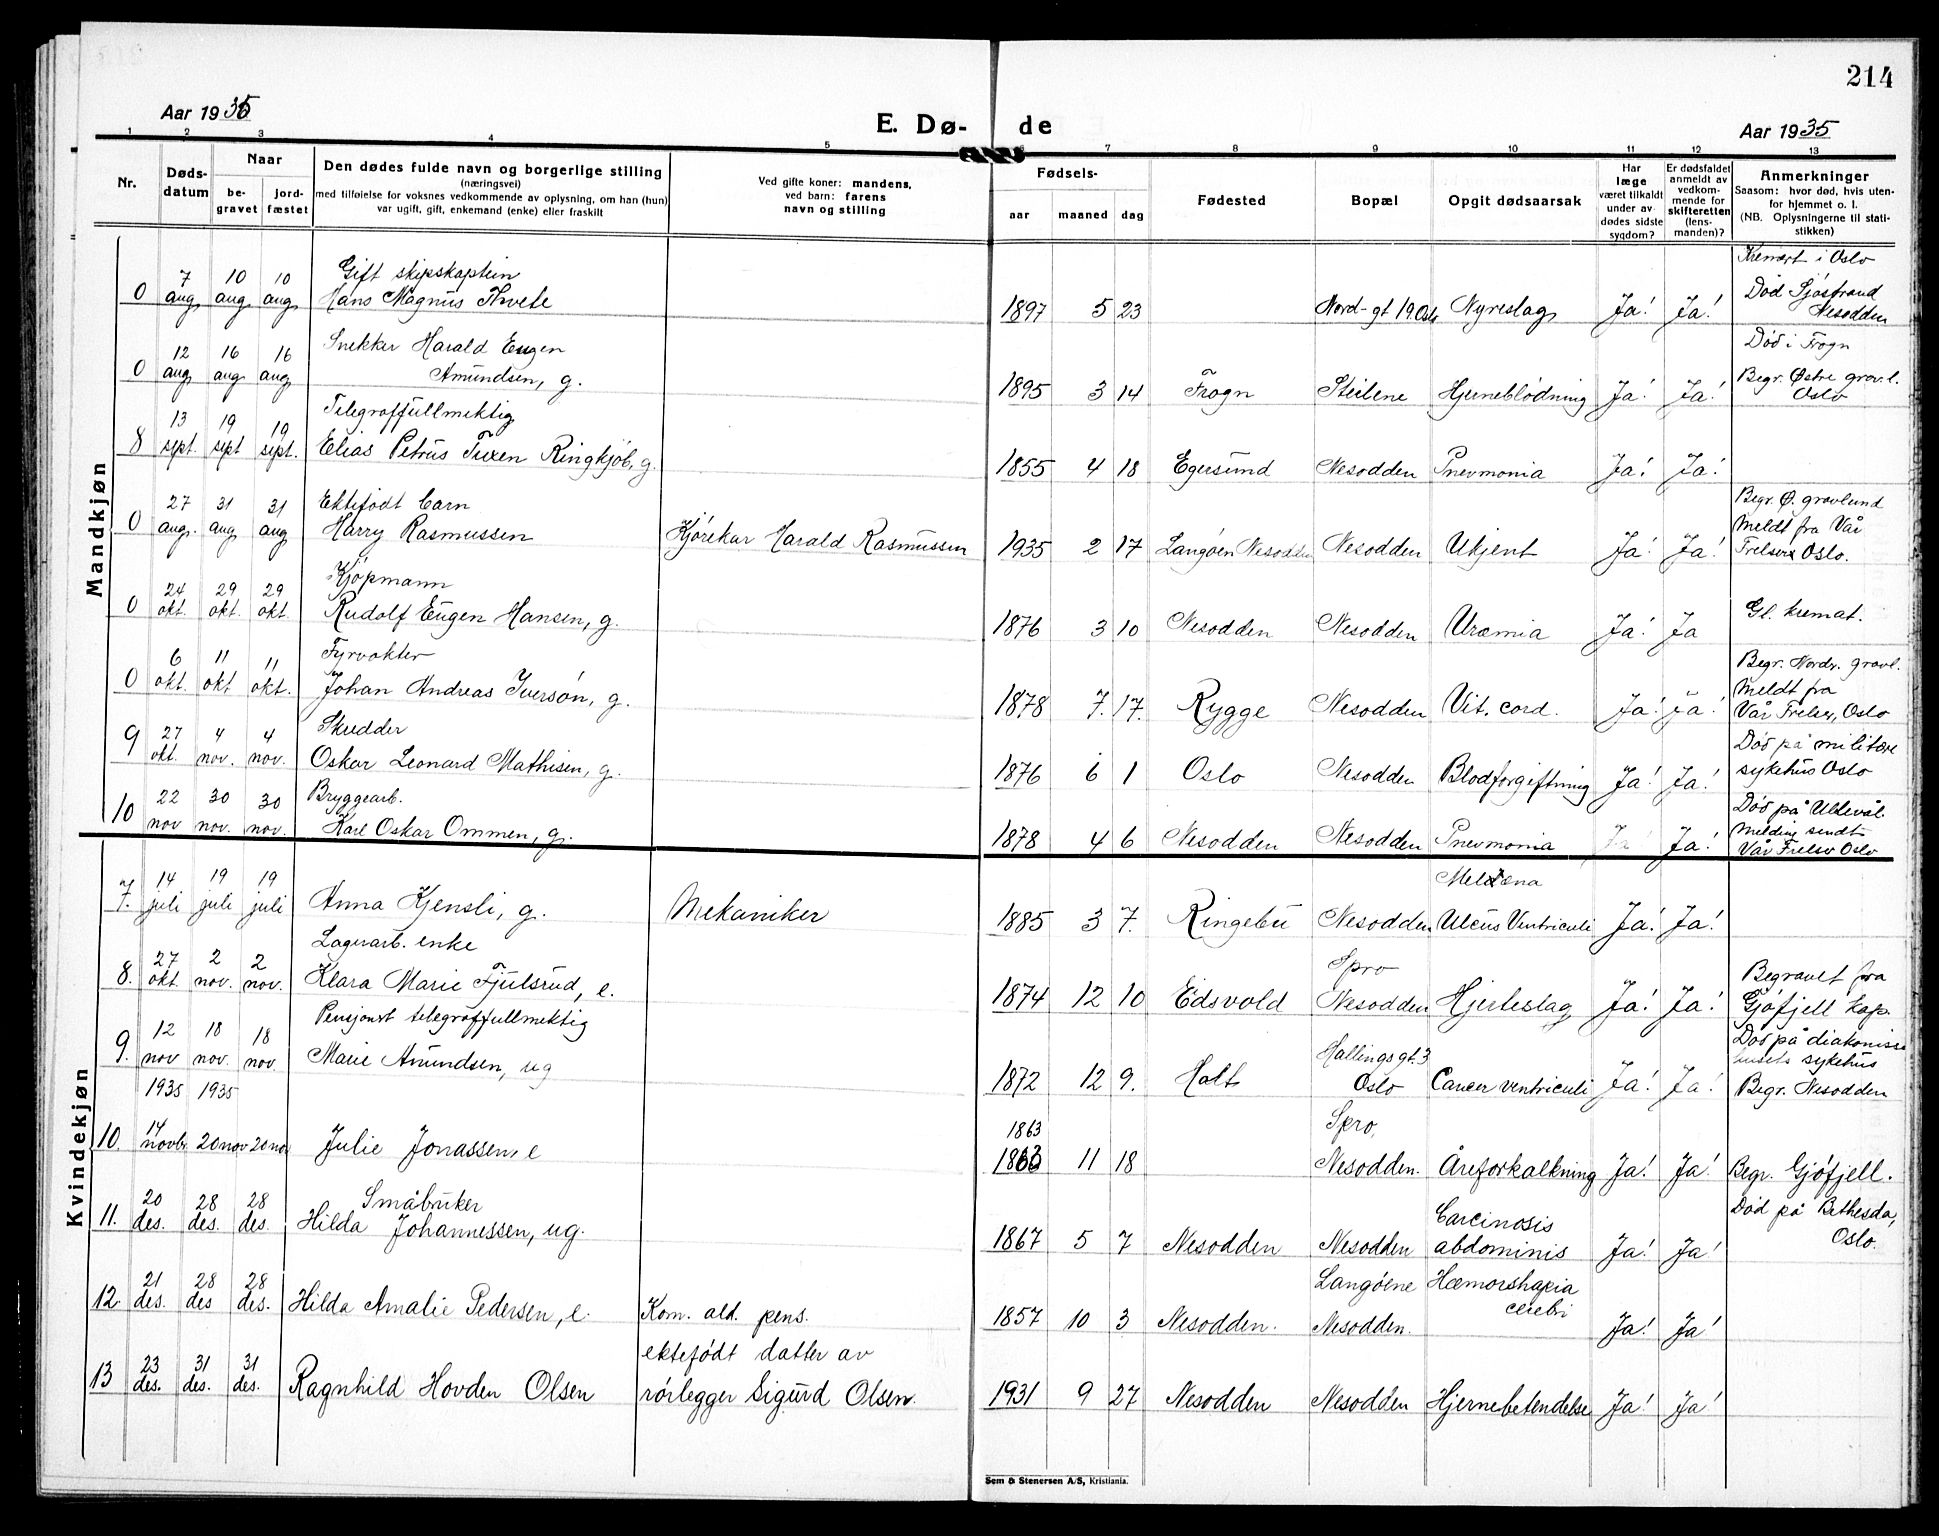 214
Aar 1935
E. Dø- de
Aar 1935
1 2 3 4 5 6 7 8 9 10 11 12 13
Nr.
Døds-
datum
Naar
be-
gravet
jord-
fæstet
Den dødes fulde navn og borgerlige stilling
(næringsvei)
med tilføielse for voksnes vedkommende av oplysning, om han (hun)
var ugift, gift, enkemand (enke) eller fraskilt
Ved gifte koner: mandens,
ved barn: farens
navn og stilling
Fødsels-
aar maaned dag
Fødested
Bopæl
Opgit dødsaarsak
Har
læge
været tilkaldt
under av-
dødes sidste
sygdom?
Er dødsfaldet
anmeldt av
vedkom-
mende for
skifteretten
(lens-
manden)?
Anmerkninger
Saasom: hvor død, hvis uten-
for hjemmet o. l.
(NB. Oplysningerne til stati-
stikken)
Mandkjøn
0 7 aug 10 aug 10 aug Gift skipskaptein
Hans Magnus Thvete 1897 5 23 Nord-gt 19. Oslo Nyreslag Ja! Ja! Kremert i Oslo
Død Sjøstrand
Nesodden
0 12 aug 16 aug 16 aug Snekker Harald Eugen
Amundsen, g. 1895 3 14 Frogn Steilene Hjerneblödning Ja! Ja! Död i Frogn
Begr. Østre grav.l.
Oslo
8 13 sept. 19 sept 19 sept. Telegraffullmektig
Elias Petrus Tuxen Ringkjöb, g. 1855 4 18 Egersund Nesodden Pnevmonia Ja! Ja!
0 27 aug. 31 aug 31 aug Ektefödt barn
Harry Rasmussen Kjörekar Harald Rasmussen 1935 2 17 Langöen Nesodden Nesodden Ukjent Ja! Ja! Begr. Ø. gravlund
Meldt fra Vår
Frelsers Oslo.
0 24 okt. 29 okt. 29 okt. Kjöpmann
Rudolf Eugen Hansen, g. 1876 3 10 Nesodden Nesodden Uræmia Ja! Ja Gl. kremat.
0 6 okt. 11 okt 11 okt. Fyrvokter
Johan Andreas Iversøn, g. 1878 7. 17. Rygge Nesodden Vit. cord. Ja! Ja! Begr. Nordr. gravl.
Meldt fra
Vår Frelser, Oslo
9 27 okt. 4 nov. 4 nov. Skredder
Oskar Leonard Mathisen, g. 1876 6 1 Oslo Nesodden Blodforgiftning Ja! Ja! Död på militære
sykehus Oslo
10 22 nov 30 nov. 30 nov. Bryggearb.
Karl Oskar Ommen, g. 1878 4 6 Nesodden Nesodden Pnevmonia Ja! Ja! Död på Ullevål
Melding sendt
Vår Frelser Oslo
Kvindekjøn
7. 14 juli 19 juli 19 juli Anna Kjensli, g. Mekaniker 1885 3 7. Ringebu Nesodden Melæna
Ulcus Ventriculi Ja! Ja!
8. 27 okt. 2 nov. 2 nov. Lagerarb. enke
Klara Marie Fjulsrud, e. 1874 12 10 Eidsvold Spro
Nesodden Hjerteslag Ja! Ja! Begravet fra
Gjöfjell kap.
9. 12 nov 18 nov. 18 nov Pensjonert telegraffullmektig
Marie Amundsen, ug 1872 12 9. Holt Hallings gt. 3
Oslo Cancer ventriculi Ja! Ja! Död på diakonisse
husets sykehus
Begr. Nesodden
1935 1935
10. 14 novbr 20 nov 20 nov Julie Jonassen, e 1863
1863 11 18 Spro,
Nesodden. Åreforkalkning Ja! Ja! Begr. Gjöfjell.
11. 20 des. 28 des. 28 des. Småbruker
Hilda Johannessen, ug. 1867 5 7 Nesodden Nesodden Carcinosis
abdominis Ja! Ja! Død på Bethesda,
Oslo.
12. 21 des. 28 des 28 des. Hilda Amalie Pedersen, e. Kom. ald. pens. 1857 10 3 Nesodden. Langöene
Nesodden. Hæmorshagia
cerebri Ja! Ja!
13 23 des. 31 des. 31 des. Ragnhild Hovden Olsen ektefødt datter av
rørlegger Sigurd Olsen. 1931 9 27 Nesodden Nesodden Hjernebetendelse Ja! Ja!
Sem & Stenersen A/S, Kristiania.